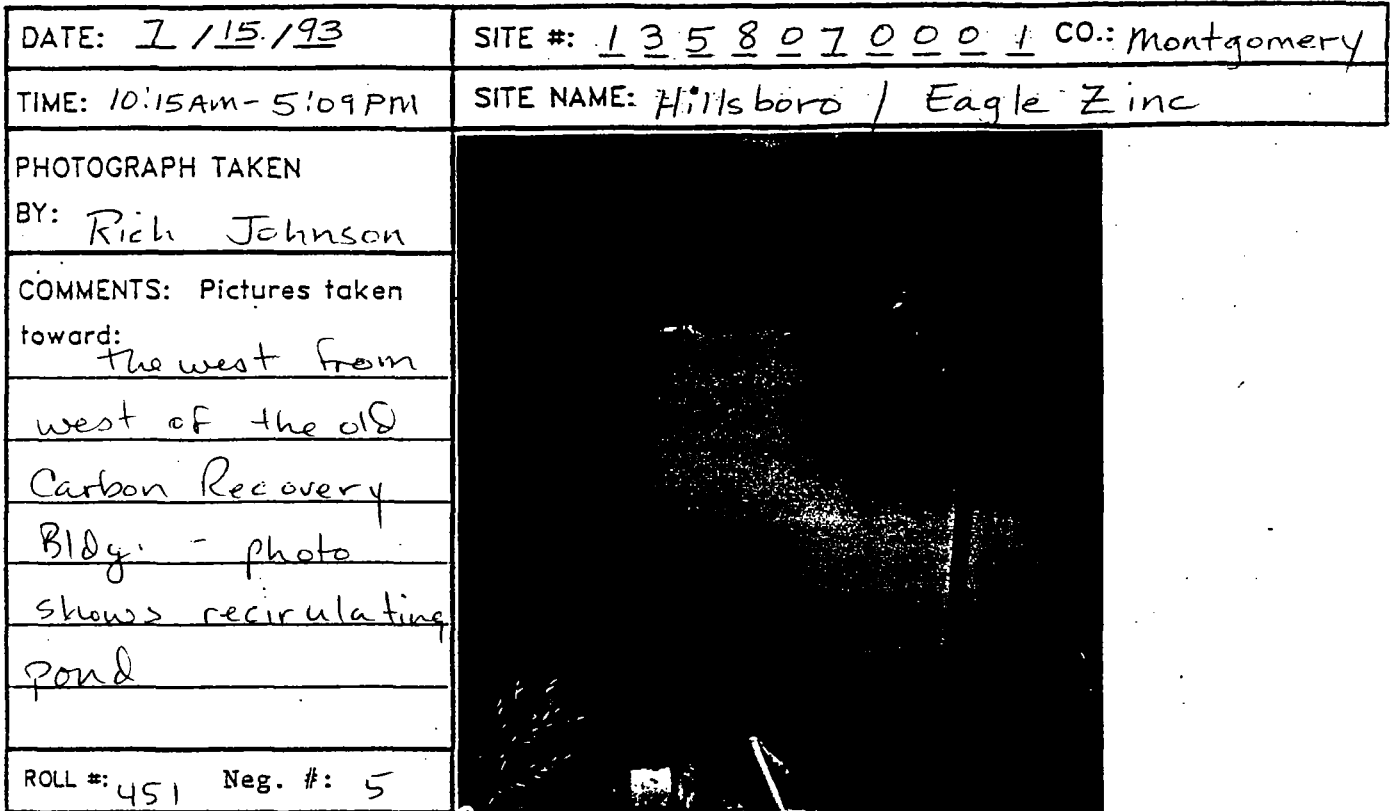 DATE: 7 / 15 / 93
SITE #: 1 3 5 8 0 7 0 0 0 1 CO.: Montgomery
TIME: 10:15 AM - 5:09 PM
SITE NAME: Hillsboro / Eagle Zinc
PHOTOGRAPH TAKEN
BY: Rich Johnson
COMMENTS: Pictures taken
toward:
the west from
west of the old
Carbon Recovery
Bldg. - photo
shows recirulating
pond
ROLL #: 451 Neg. #: 5